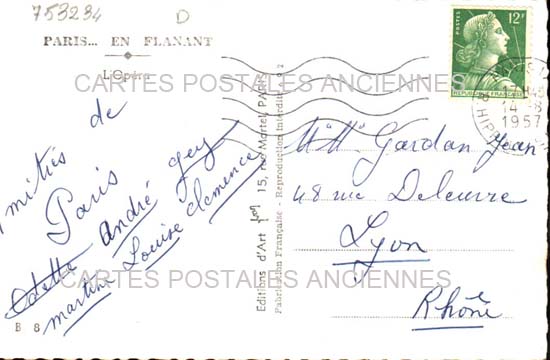 753234 D
PARIS... EN FLANANT
L'Opéra
CARTES POSTALES ANCIENNES
mitiés de
Paris
Odette André Guy
martine Louise Clemence
B 8
Editions d'Art
15, rue Martel, PARIS
Fabrication Française - Reproduction interdite
POSTES 12F
REPUBLIQUE FRANÇAISE
17H45
14-8
1957
Gardan Jean
48 rue Deleuvre
Lyon
CARTES POSTALES ANCIENNES
Rhône